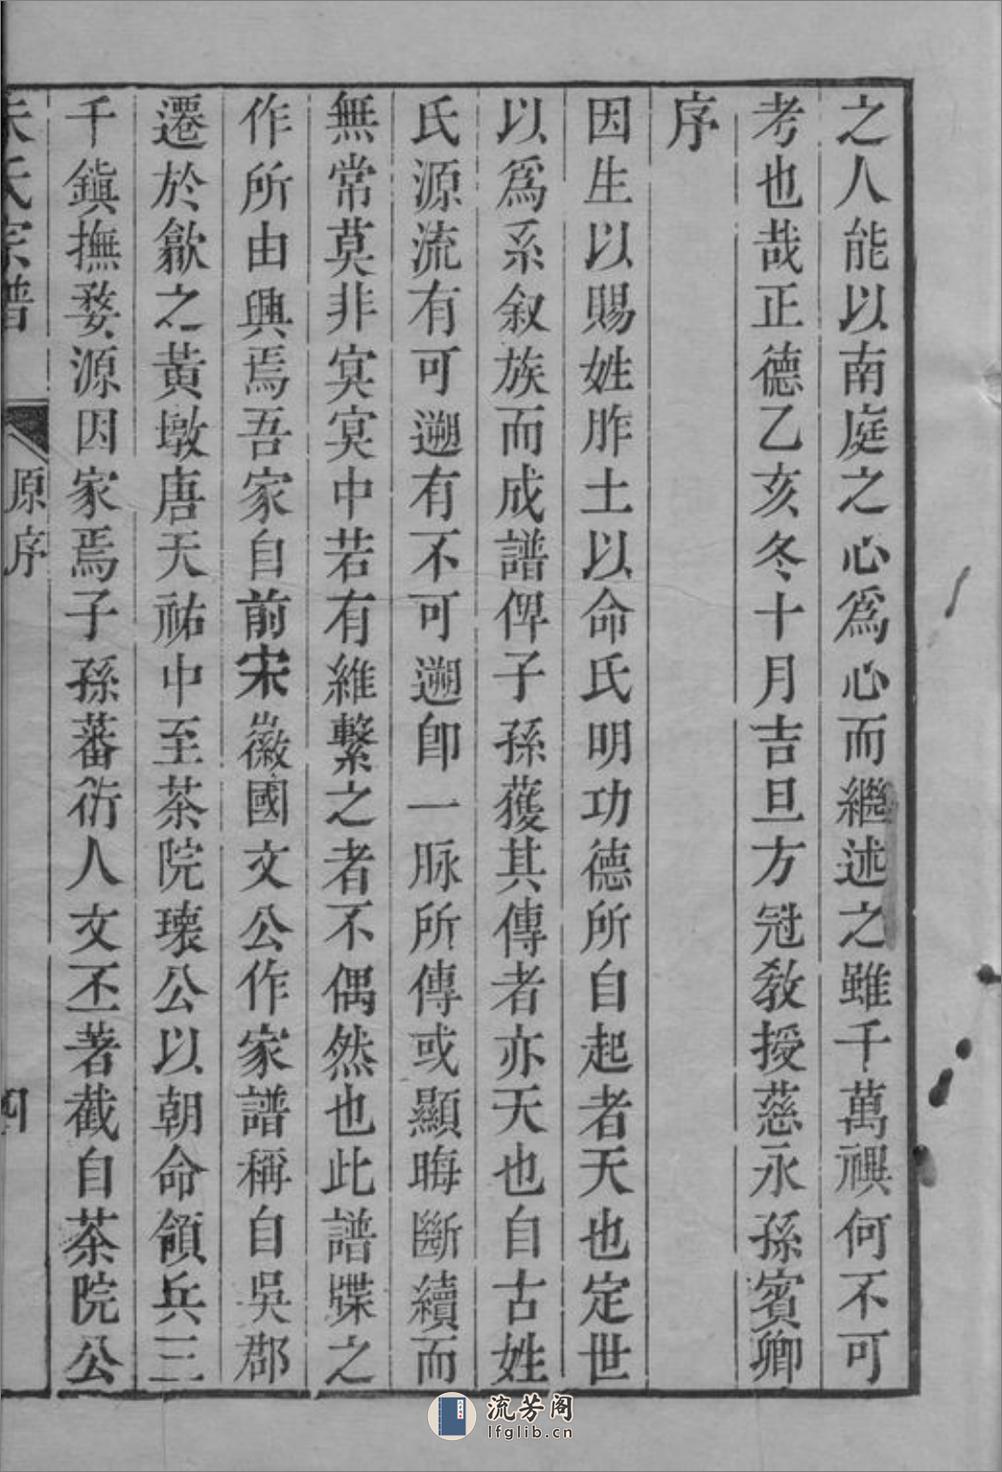 之人能以南庭之心爲心而繼述之雖千萬禩何不可
考也哉正德乙亥冬十月吉旦方冠敎授慈永孫賓卿
序
因生以賜姓胙土以命氏明功德所自起者天也定世
以爲系叙族而成譜俾子孫獲其傳者亦天也自古姓
氏源流有可遡有不可遡卽一脉所傳或顯晦斷續而
無常莫非冥冥中若有維繫之者不偶然也此譜牒之
作所由興焉吾家自前宋徽國文公作家譜稱自吳郡
遷於歙之黃墩唐天祐中至茶院瓌公以朝命領兵三
千鎭撫婺源因家焉子孫蕃衍人文丕著截自茶院公
朱氏宗譜
原序
四
流芳阁
lfglib.cn